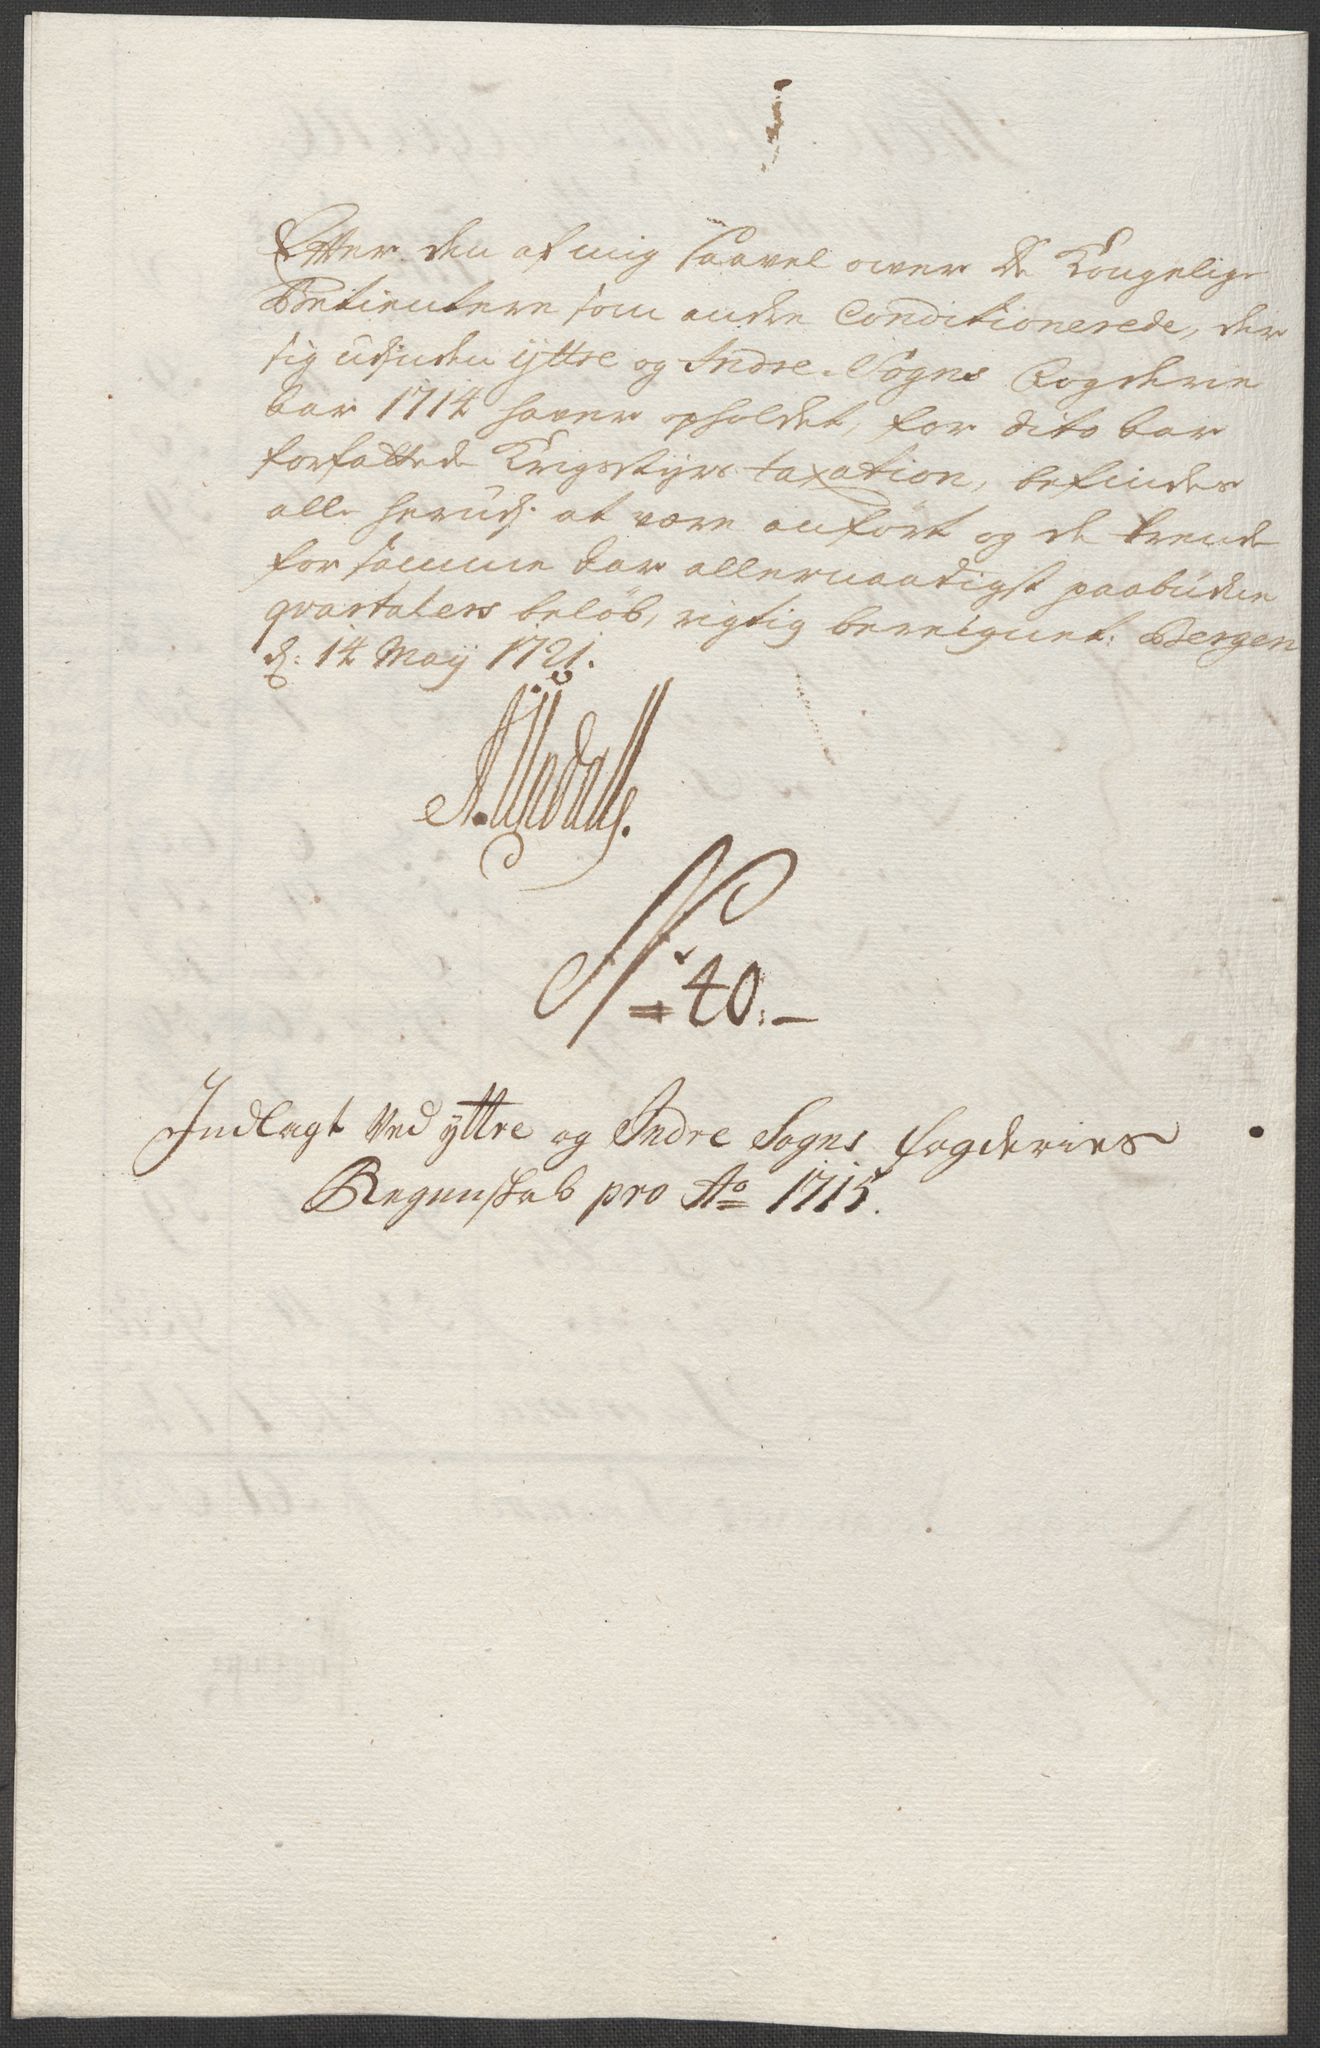 Efter den af mig saavel over de Kongelige
Betientere som andre Conditionerede, der
sig udj under yttre og Indre Sogns Fogderie
aar 1714 haver opholdet, for dito aar
forfattede Krigsstyrs taxation, befindes
alle herudj at være anført og de trende
for samme aar allernaadigst paabudne
qvartalers beløb, rigtig beregnet. Bergen
d: 14 Maÿ 1721.
N: 40.-
Indlagt Ved yttre og Indre Sogns fogderies
Regenskab pro Ao 1715.